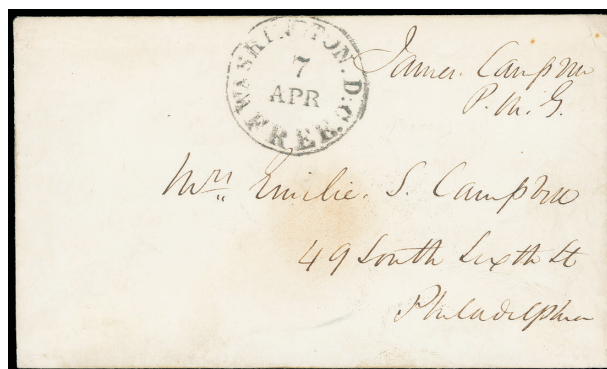 WASHINGTON. D.C.
7
APR
FREE
James Campbell
P. M. G.
Mrs Emilie. S. Campbell
49 South Sixth St
Philadelphia